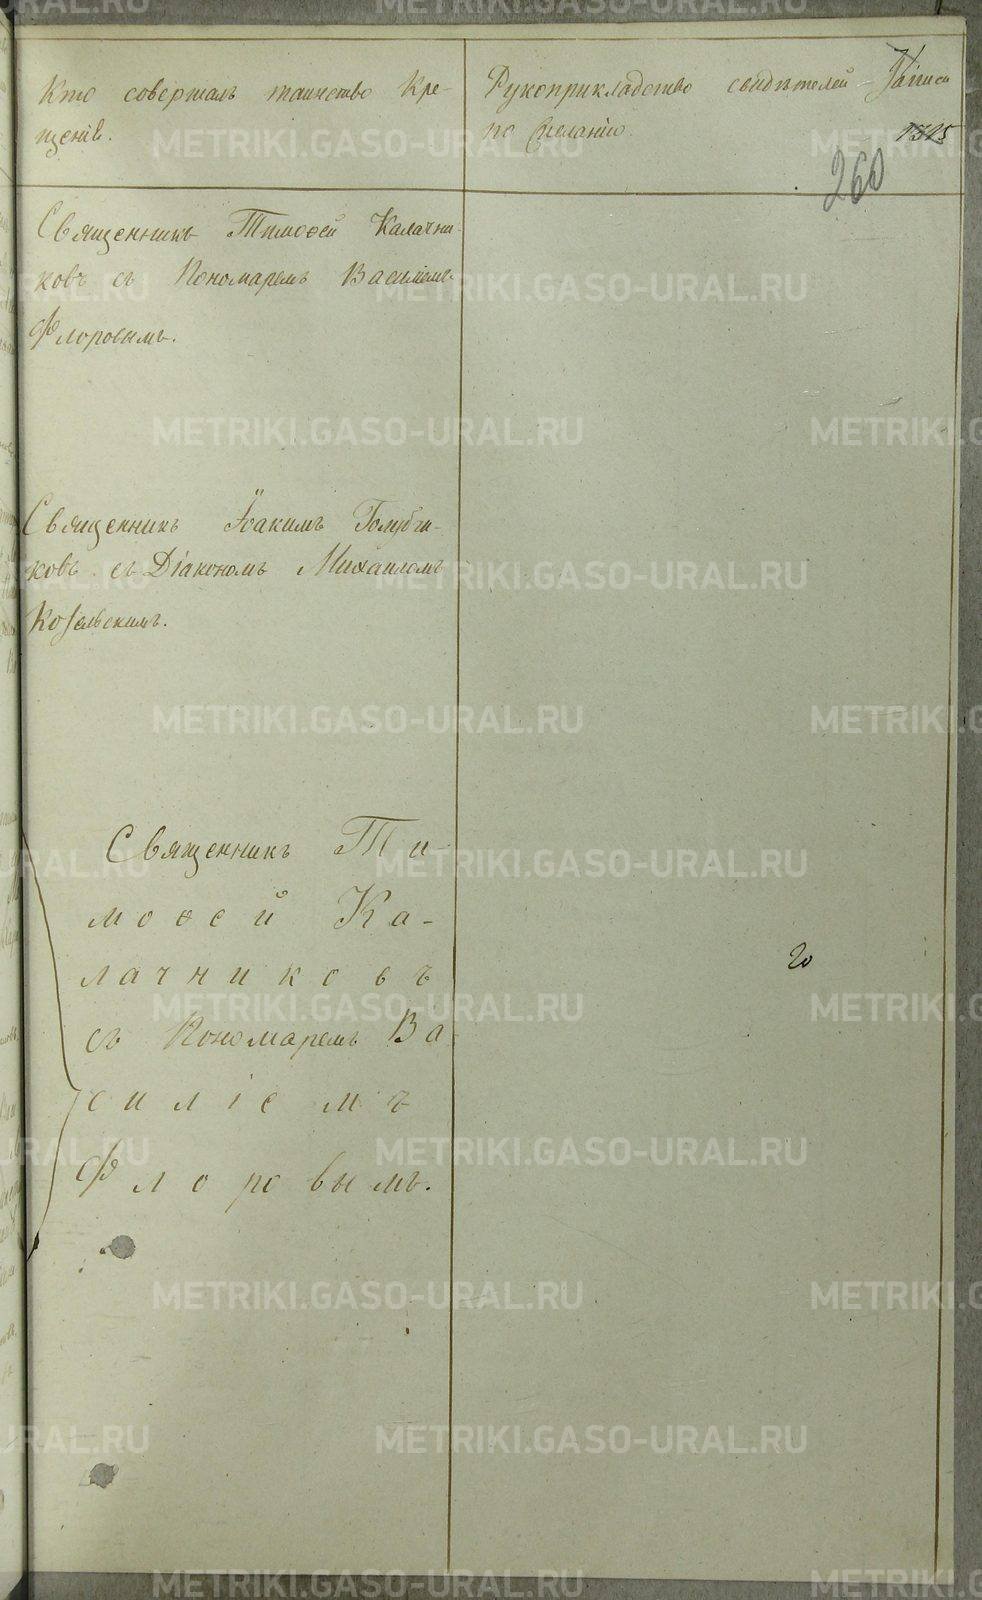 Кто совершалъ таинство Кре-
щенія.
Рукоприкладство свидѣтелей записи
по желанію.
1315
260
Священникъ Тимоѳей Калачни-
ковъ съ Пономаремъ Василіемъ
Флоровымъ.
Священникъ Іоакимъ Голубчи-
ковъ съ Діакономъ Михаиломъ
Козельскимъ.
Священникъ Ти-
моѳей Ка-
лачниковъ
съ Пономаремъ Ва-
силіемъ
Флоровымъ.
20
METRIKI.GASO-URAL.RU